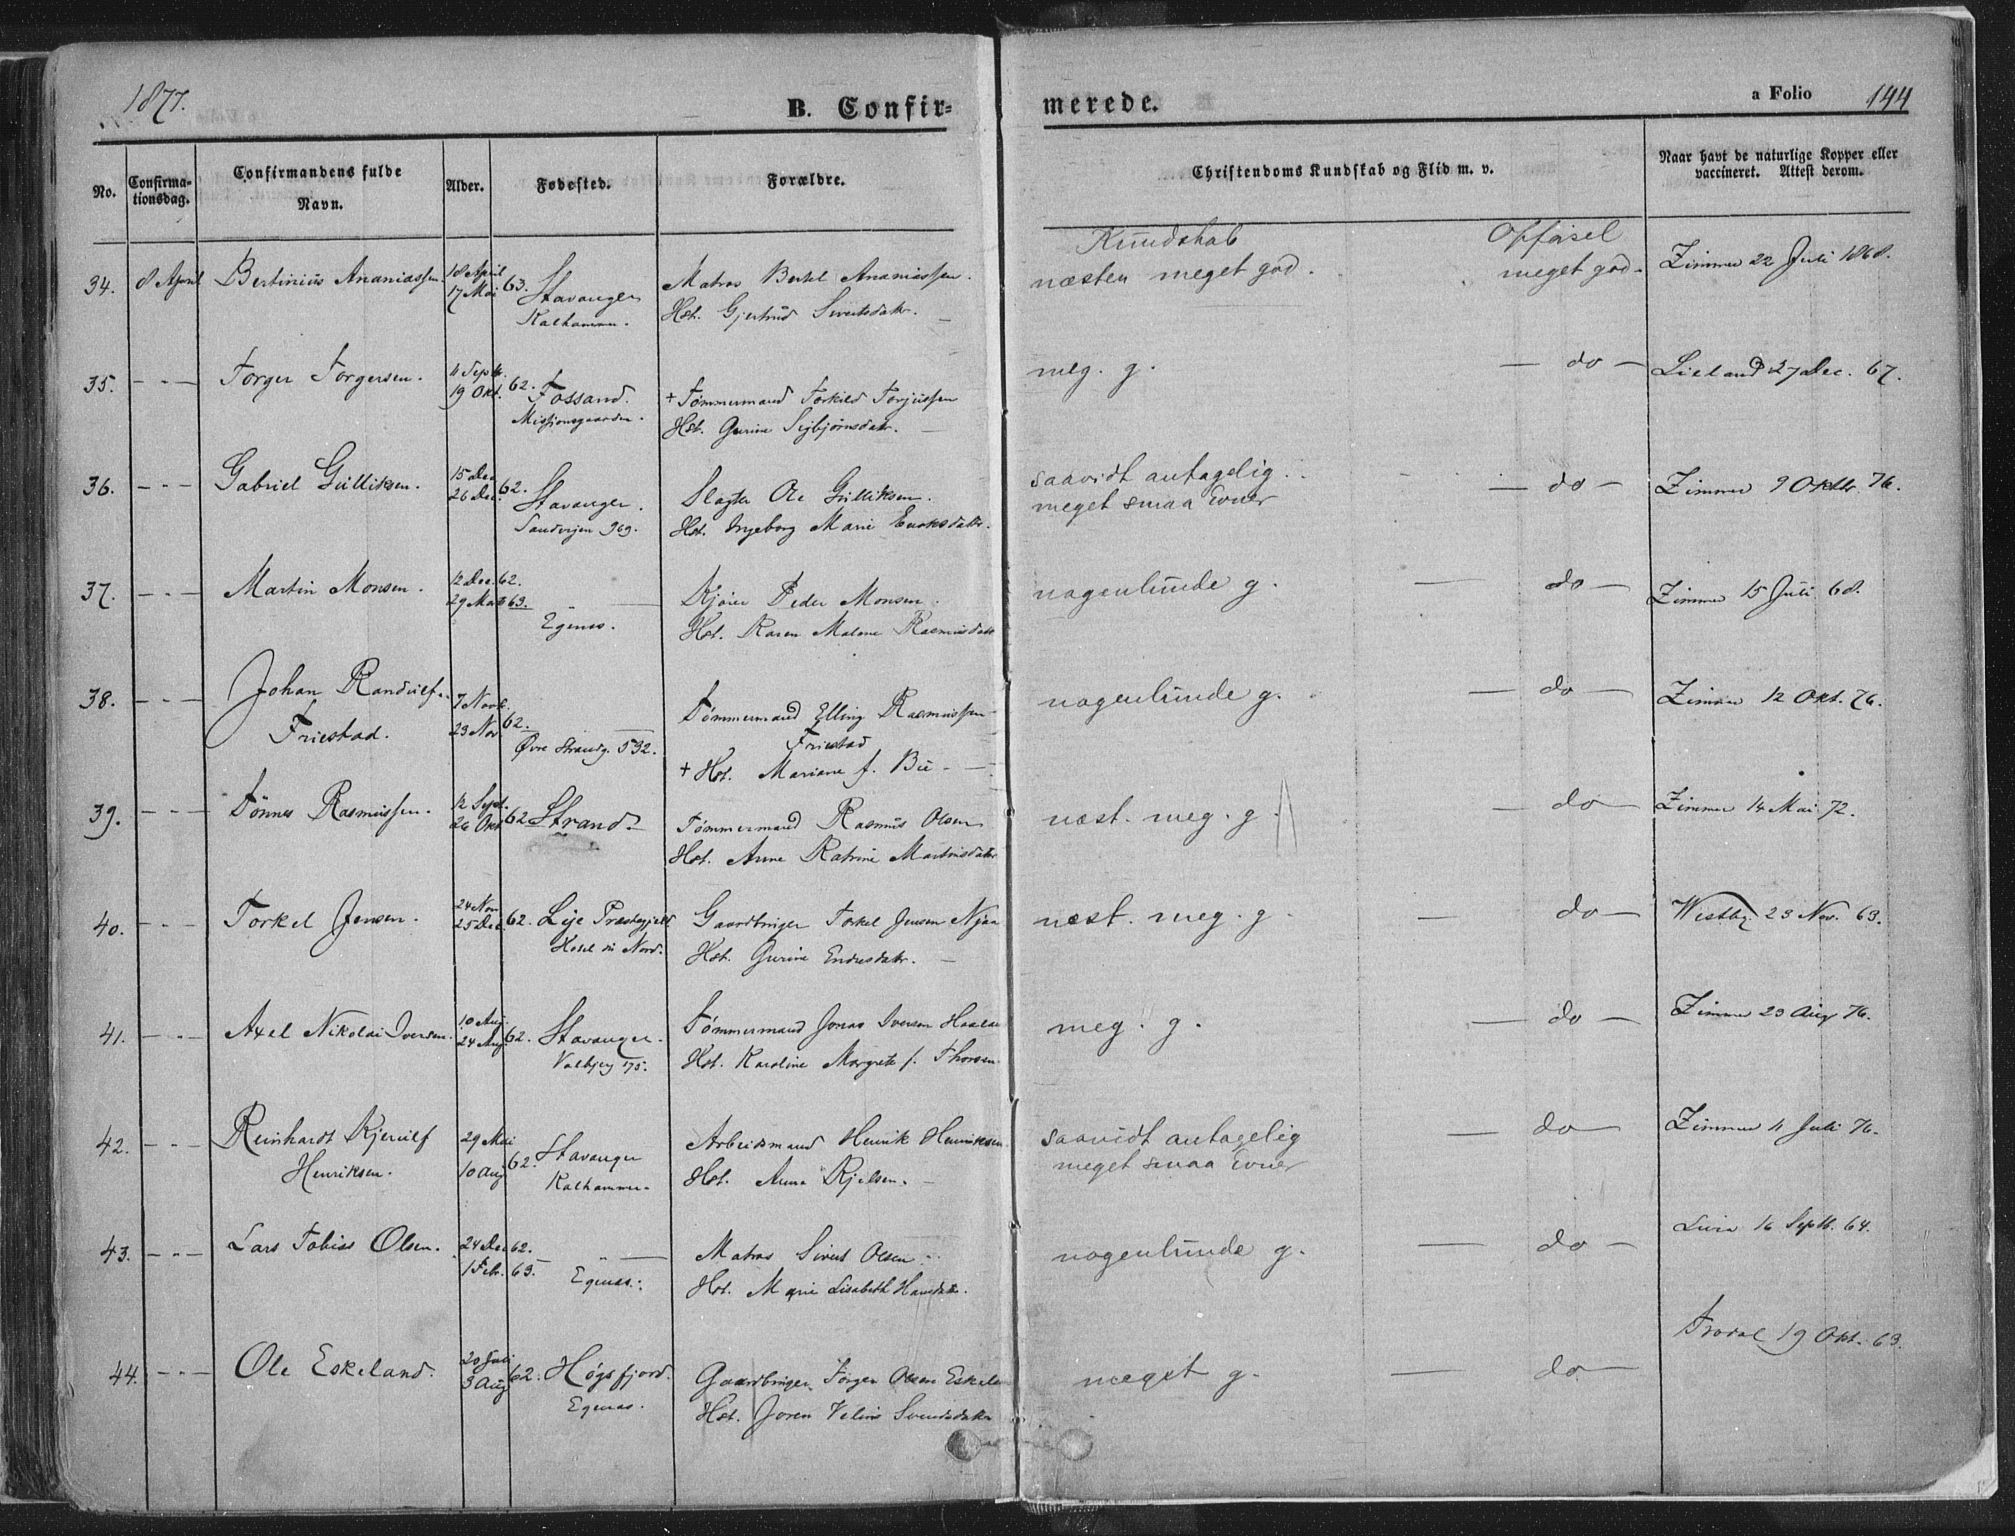 1877.
B. Confir=
merede.
a Folio 144
No.
Confirma-
tionsdag.
Confirmandens fulde
Navn.
Alder.
Fødested.
Forældre.
Christendoms Kundskab og Flid m. v.
Naar havt de naturlige Kopper eller
vaccineret. Attest derom.
Kundskab Opførsel
34. 8 April Bertinius Ananiassen. 18 April 17 Mai 63. Stavanger Kalhammer. Matros Bertel Ananiassen. næsten meget god. meget god. Zimmer 22 Juli 1868.
Hst. Gjertrud Sivertsdatr.
35. — " — Torger Torgersen. 11 Septb. 19 Okt. 62. Fossand. Missjonsgaarden. + Tømmermand Torkild Torjussen meg. g. — do — Lieland 27 Dec. 67.
Hst. Gurine Sigbjørnsdatr.
36. — " — Gabriel Gulliksen. 15 Dec 26 Dec. 62. Stavanger. Sandvigen 969. Slagter Ole Gulliksen. saavidt antagelig. — do — Zimmer 9 Oktb. 76.
Hst. Ingeborg Marie Enoksdatr. meget smaa Evner
37. — " — Martin Monsen. 12 Dec. 62. 29 Mars 63. — " — Egenes. Kjører Peder Monsen. nogenlunde g. — do — Zimmer 15 Juli 68.
Hst. Karen Malene Rasmusdatr
38. — " — Johan Randulf 7 Novb. 23 Nov 62. — Øvre Strandg. 532. Tømmermand Elling Rasmussen nogenlunde g. — do — Zimmer 12 Okt. 76.
Friestad. Friestad
+ Hst. Mariane f. Bu
39. — " — Tønnes Rasmussen. 12 Sept. 26 Okt 62 Strand. Tømmermand Rasmus Olsen næst. meg. g. — do — Zimmer 14 Mai 72.
Hst. Anne Katrine Martinsdatr
40. — " — Torkel Jensen. 24 Nov 25 Dec. 62. Lye Præstegjeld Gaardbruger Torkel Jensen Njaa næst. meg. g. — do — Westby 23 Nov. 63.
Hst. Gurine Endresdatr.
41. — " — Axel Nikolai Iversen. 10 Aug. 24 Aug. 62. Stavanger. Valbjerg 175. Tømmermand Jonas Iversen Haaland meg. g. — do — Zimmer 23 Aug 76.
Hst. Karoline Margrete f. Thorsen.
42. — " — Reinhardt Kjerulf 29 Mai 10 Aug 62. Stavanger Kalhammer. Arbeidsmand Henrik Henriksen. saavidt antagelig — do — Zimmer 11 Juli 76.
Henriksen. Hst. Anna Kjelsen. meget smaa Evner
43. — " — Lars Tobias Olsen. 24 Dec 62. 1 Feb. 63. — " — Egenes. Matros Sivert Olsen nogenlunde g. — do — 16 Septb. 64.
Hst. Marie Lisabeth Hansdatr.
44. — " — Ole Eskeland. 20 Juli 3 Aug 62. Høgsfjord. Egenes. Gaardbruger Torger Olsen Eskeland meget g. — do — Trodal 19 Okt. 63.
Hst. Joren Veline Svendsdatr